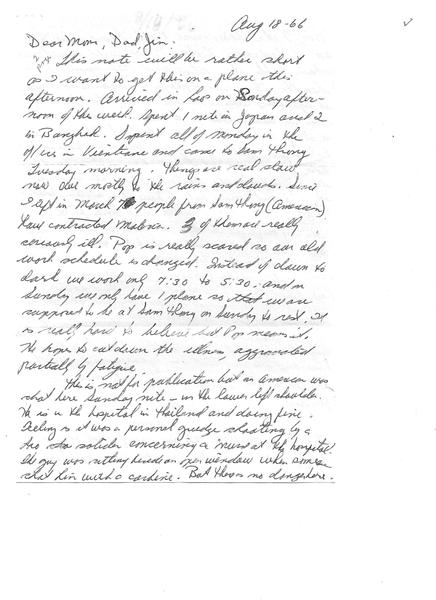 Aug 18-66
Dear Mom, Dad, Jim.
This note will be rather short
as I want to get this on a plane this
afternoon. Arrived in Laos on Sunday after-
noon of the week. Spent 1 nite in Japan and 2
in Bangkok. Spent all of Monday in the
office in Vientiane and came to Sam Thong
Tuesday morning. Things are real slow
now due mostly to the rains and clouds. Since
I left in March 7 people from Sam Thong (American)
have contracted Malaria. 3 of them are really
seriously ill. Pop is really scared so our old
work schedule is changed. Instead of dawn to
dark we work only 7:30 to 5:30. and on
Sunday we only have 1 plane so that we are
supposed to be at Sam Thong on Sunday to rest. It
is really hard to believe but Pop means it.
He hopes to cut down the illness aggravated
partially by fatigue.
This is not for publication but an American was
shot here Sunday nite - in the lower left shoulder.
He is in the hospital in Thailand and doing fine.
Feeling is it was a personal grudge shooting by a
soldier concerning a nurse at the hospital.
The guy was sitting beside an open window when someone
shot him with a carbine. But there is no danger here.